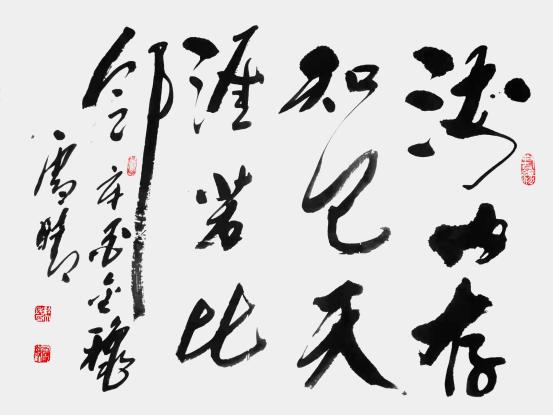 海内存
知己天
涯若比
邻
辛西金秋
雪晴